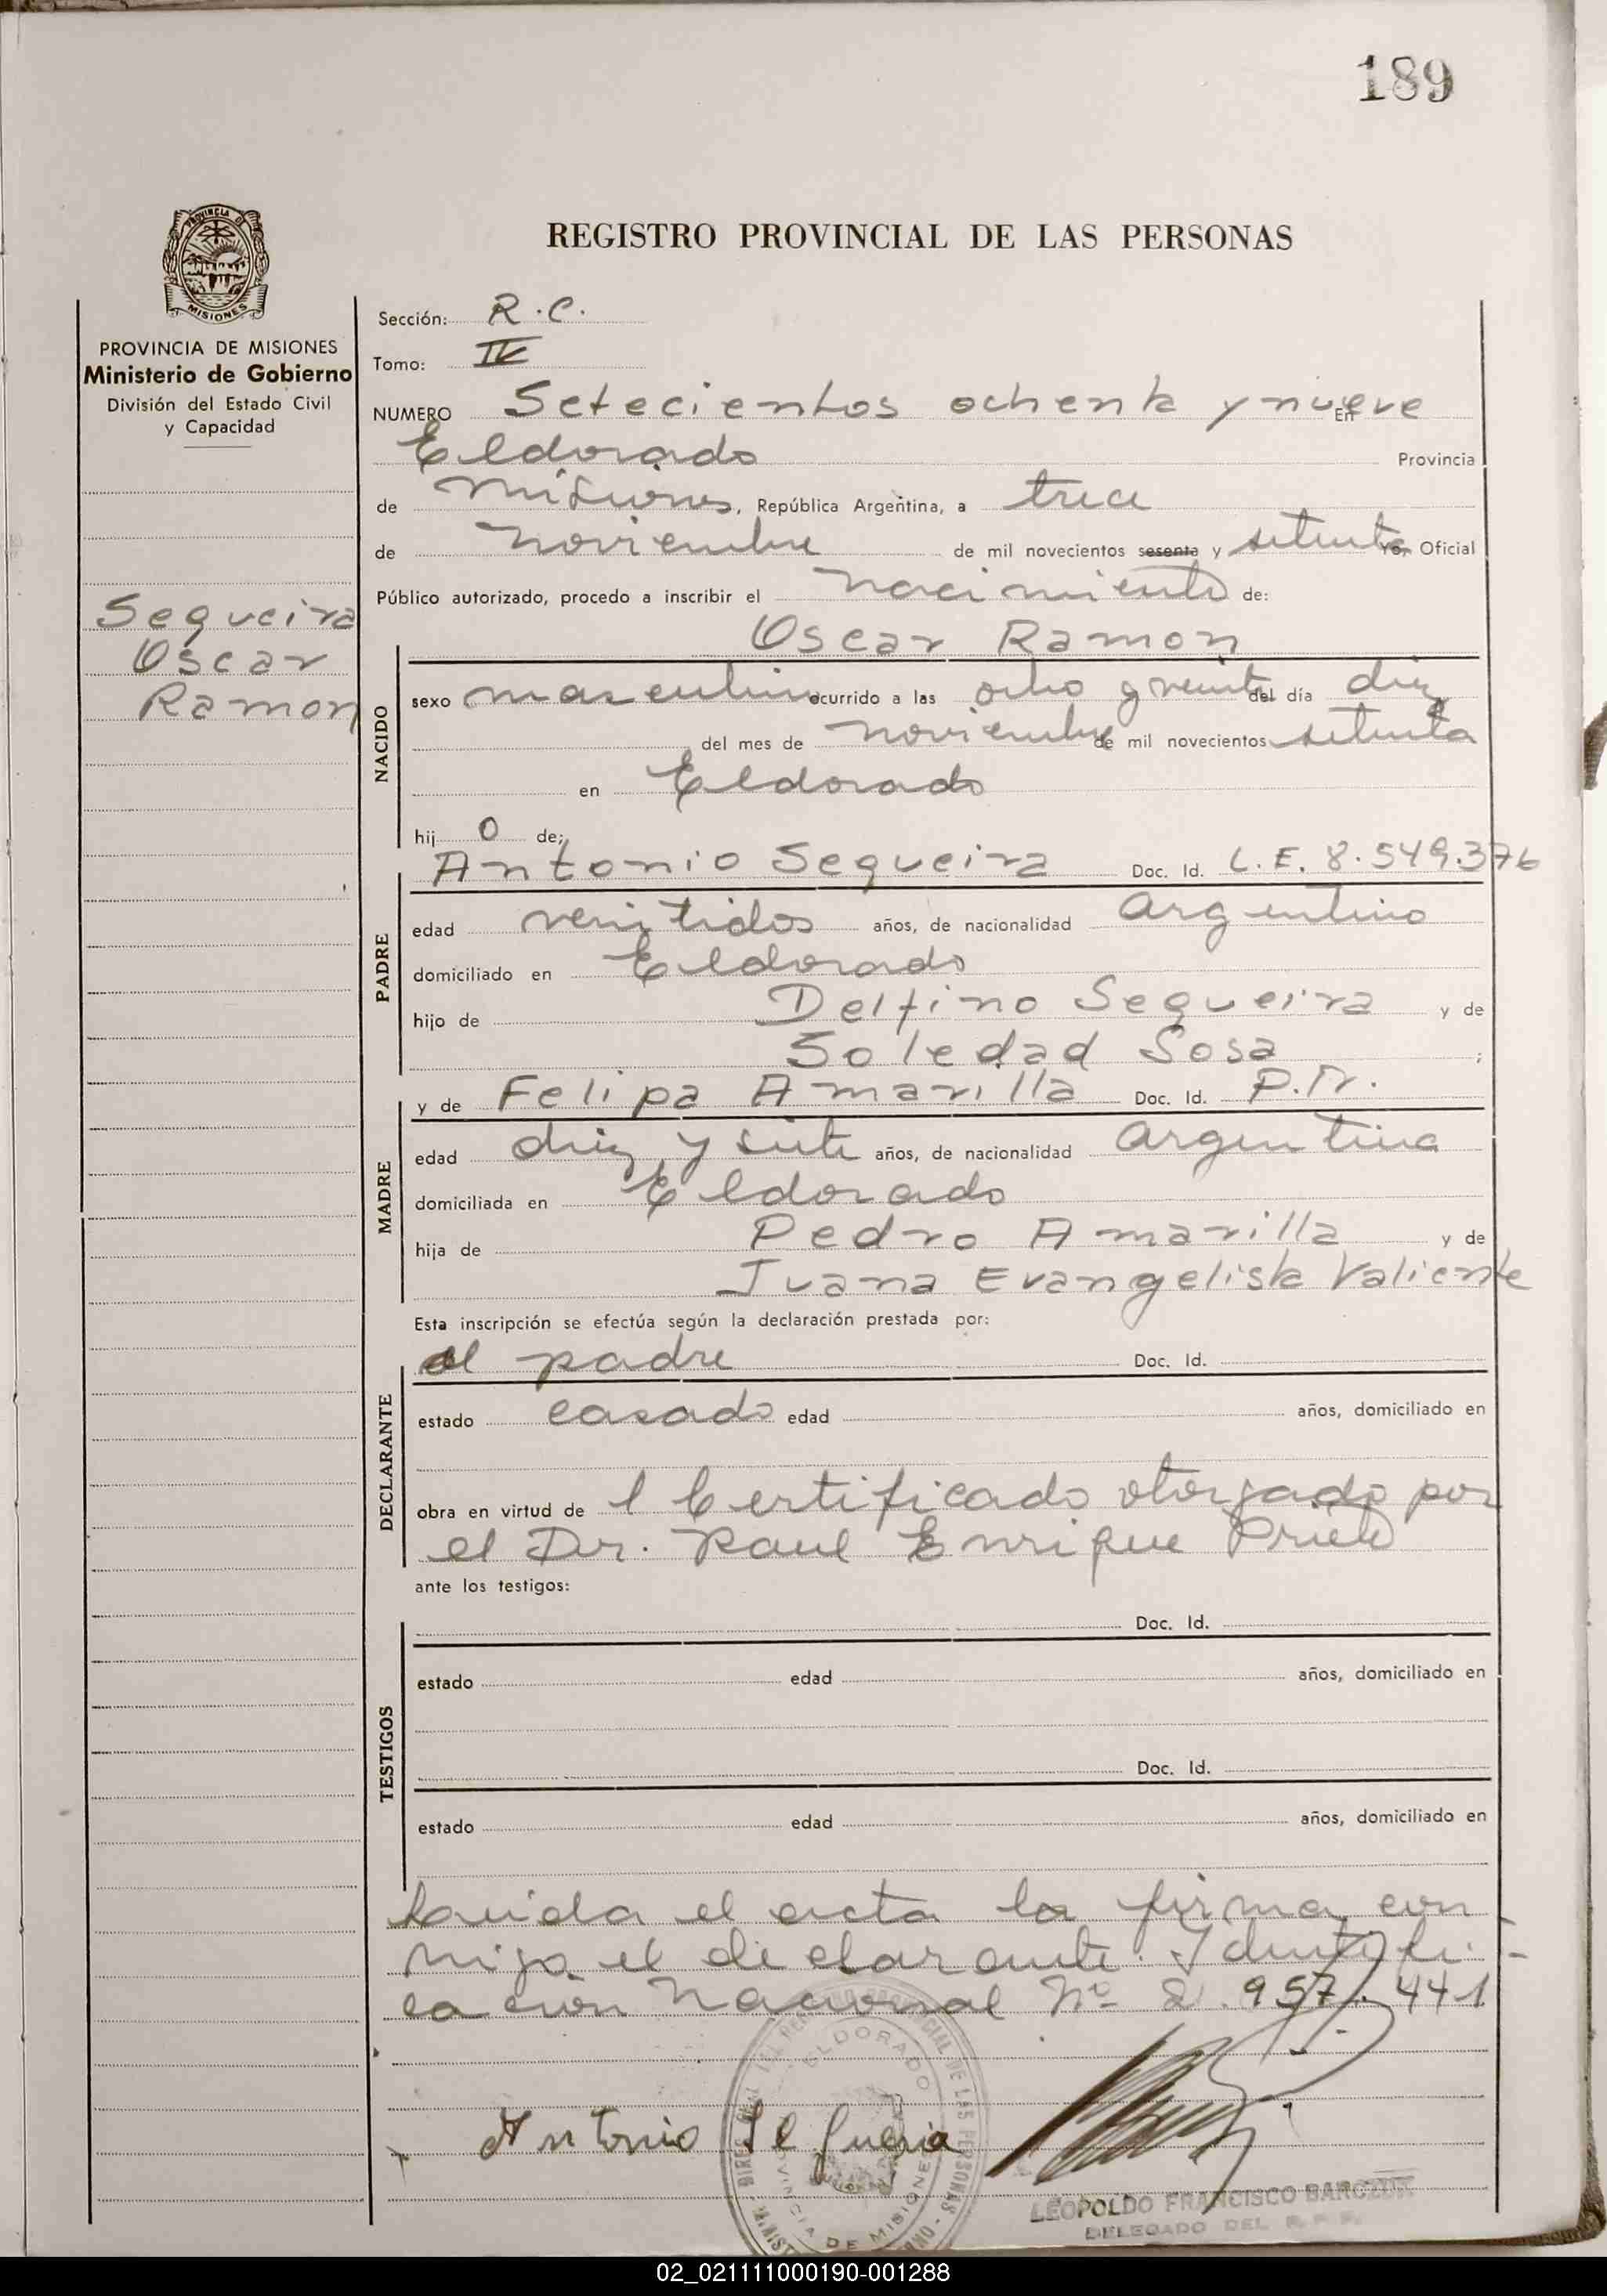 189
PROVINCIA DE
MISIONES
REGISTRO PROVINCIAL DE LAS PERSONAS
PROVINCIA DE MISIONES
Ministerio de Gobierno
División del Estado Civil
y Capacidad
Sequeira
Oscar
Ramon
Sección: R.C.
Tomo: IV
NUMERO Setecientos ochenta y nueve En
Eldorado Provincia
de Misiones, República Argentina, a trece
de noviembre de mil novecientos sesenta y setenta Yo, Oficial
Público autorizado, procedo a inscribir el nacimiento de:
Oscar Ramon
NACIDO
sexo masculino ocurrido a las ocho y veinte del día diez
del mes de noviembre de mil novecientos setenta
en Eldorado
hij o de:
Antonio Sequeira Doc. Id. L.E. 8.549.376
PADRE
edad veintidos años, de nacionalidad argentino
domiciliado en Eldorado
hijo de Delfino Sequeira y de
Soledad Sosa ;
y de Felipa Amarilla Doc. Id. P.Tr.
MADRE
edad diez y siete años, de nacionalidad argentina
domiciliada en Eldorado
hija de Pedro Amarilla y de
Juana Evangelista Valiente
Esta inscripción se efectúa según la declaración prestada por:
el padre Doc. Id.
DECLARANTE
estado casado edad años, domiciliado en
obra en virtud de 1 Certificado otorgado por
el Dr. Raul Enrique Prieto
ante los testigos:
Doc. Id.
TESTIGOS
estado edad años, domiciliado en
Doc. Id.
estado edad años, domiciliado en
Leida el acta la firma con
migo el declarante. Identifi-
cacion Nacional Nº 21.957.441
Antonio Sequeira
ELDORADO
PROVINCIA DE MISIONES
LEOPOLDO FRANCISCO
DELEGADO DEL R.P.P.
02_021111000190-001288